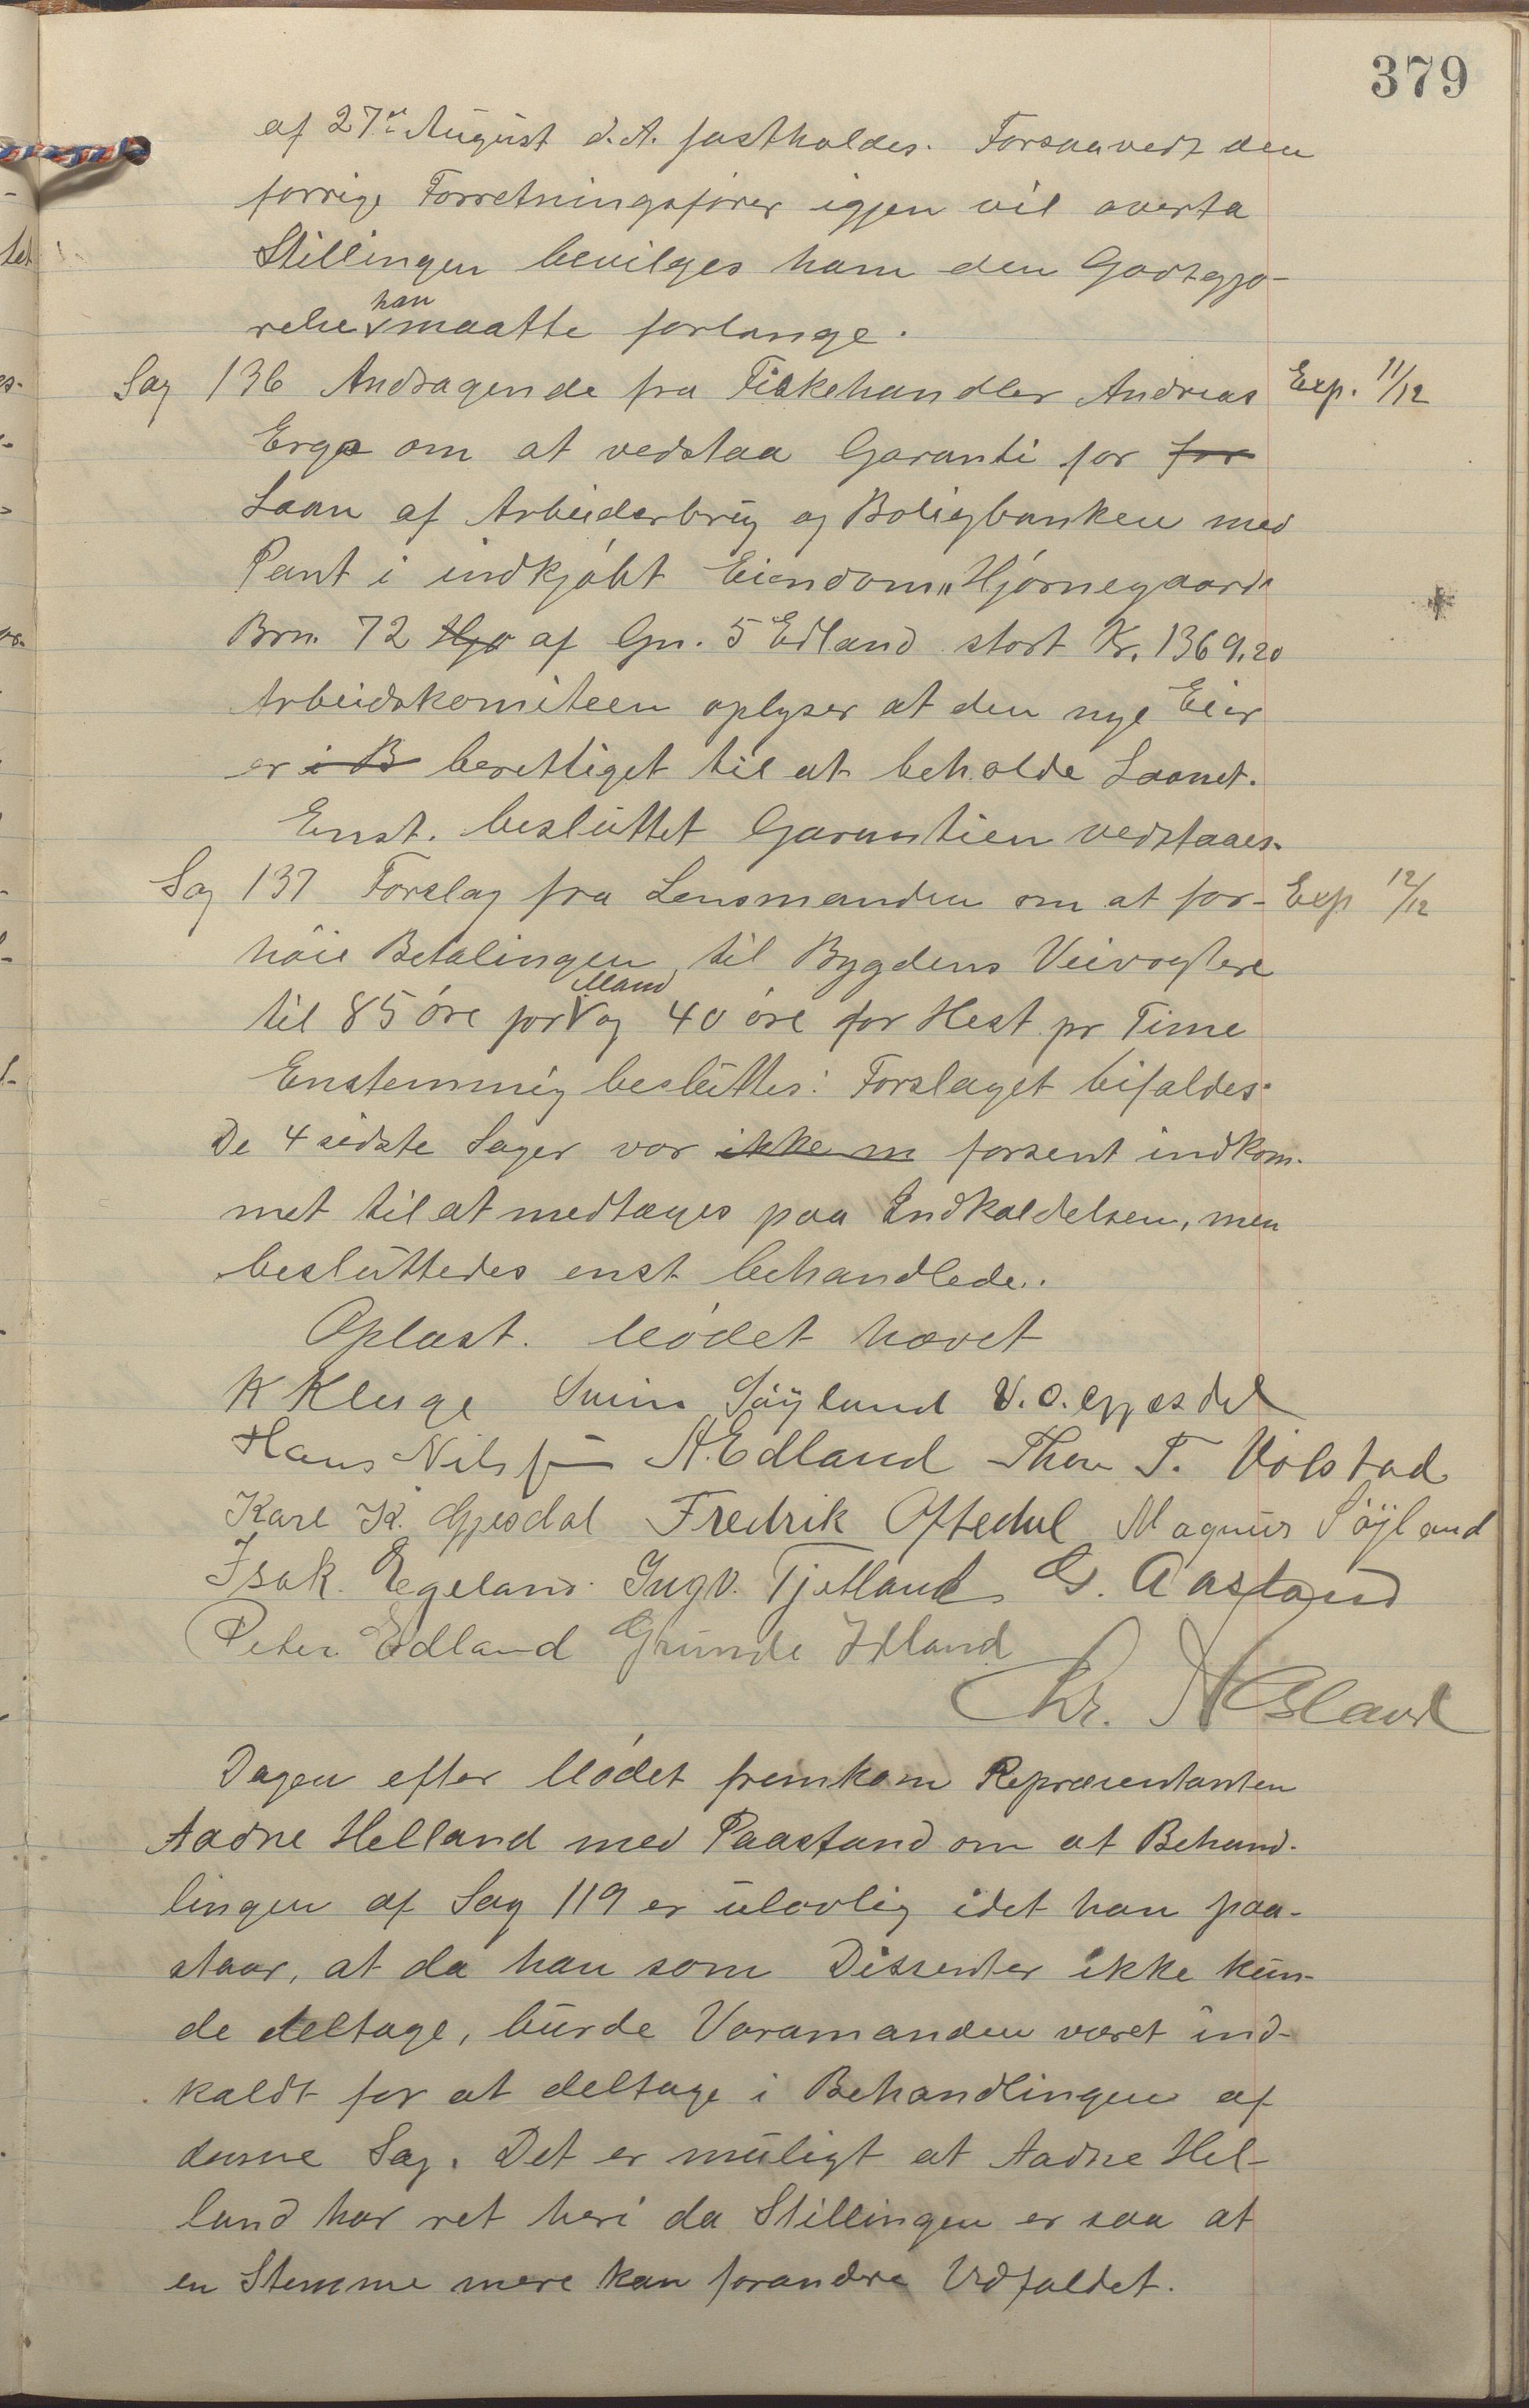 379
af 27de August d.A. fastholdes. Forsaavedt den
forrige Forretningsfører igjen vil overta
Stillingen bevilges ham den Godtgjø-
relse han maatte forlange.
Sag 136 Andragende fra Fiskehandler Andreas Exp. 11/12
Erga om at vedstaa Garanti for for
Laan af Arbeiderbrug og Boligbanken med
Pant i indkjøbt Eiendom "Hjørnegaard"
Brn. 72 Hjo af Gn. 5 Edland stort Kr. 1369,20
Arbeidskomiteen oplyser at den nye Eier
er i B berettiget til at beholde Laanet.
Enst. besluttet Garantien vedstaaes.
Sag 137 Forslag fra Lensmanden om at for- Exp 12/12
høie Betalingen til Bygdens Veivogtere
til 85 øre for Mand og 40 øre for Hest pr Time
Enstemmig besluttes: Forslaget bifaldes.
De 4 sidste Sager var ikke m forsent indkom-
met til at medtages paa Indkaldelsen, men
besluttedes enst behandlede.
Oplæst. Mødet hævet
K Kluge Svein Søyland V. O. Gjesdal
Hans Nilsen A. Edland Thor T. Volstad
Karl K. Gjesdal Fredrik Oftedal Magnus Søyland
Isak Egeland Ingv. Tjetland G. Aasland
Peter Edland Grunde Idland
Chr. N Æsland
Dagen efter Mødet fremkom Repræsentanten
Aadne Helland med Paastand om at Behand-
lingen af Sag 119 er ulovlig idet han paa-
staar, at da han som Dissenter ikke kun-
de deltage, burde Varamanden været ind-
kaldt for at deltage i Behandlingen af
denne Sag. Det er muligt at Aadne Hel-
land har ret heri da Stillingen er saa at
en Stemme mere kan forandre Udfaldet.